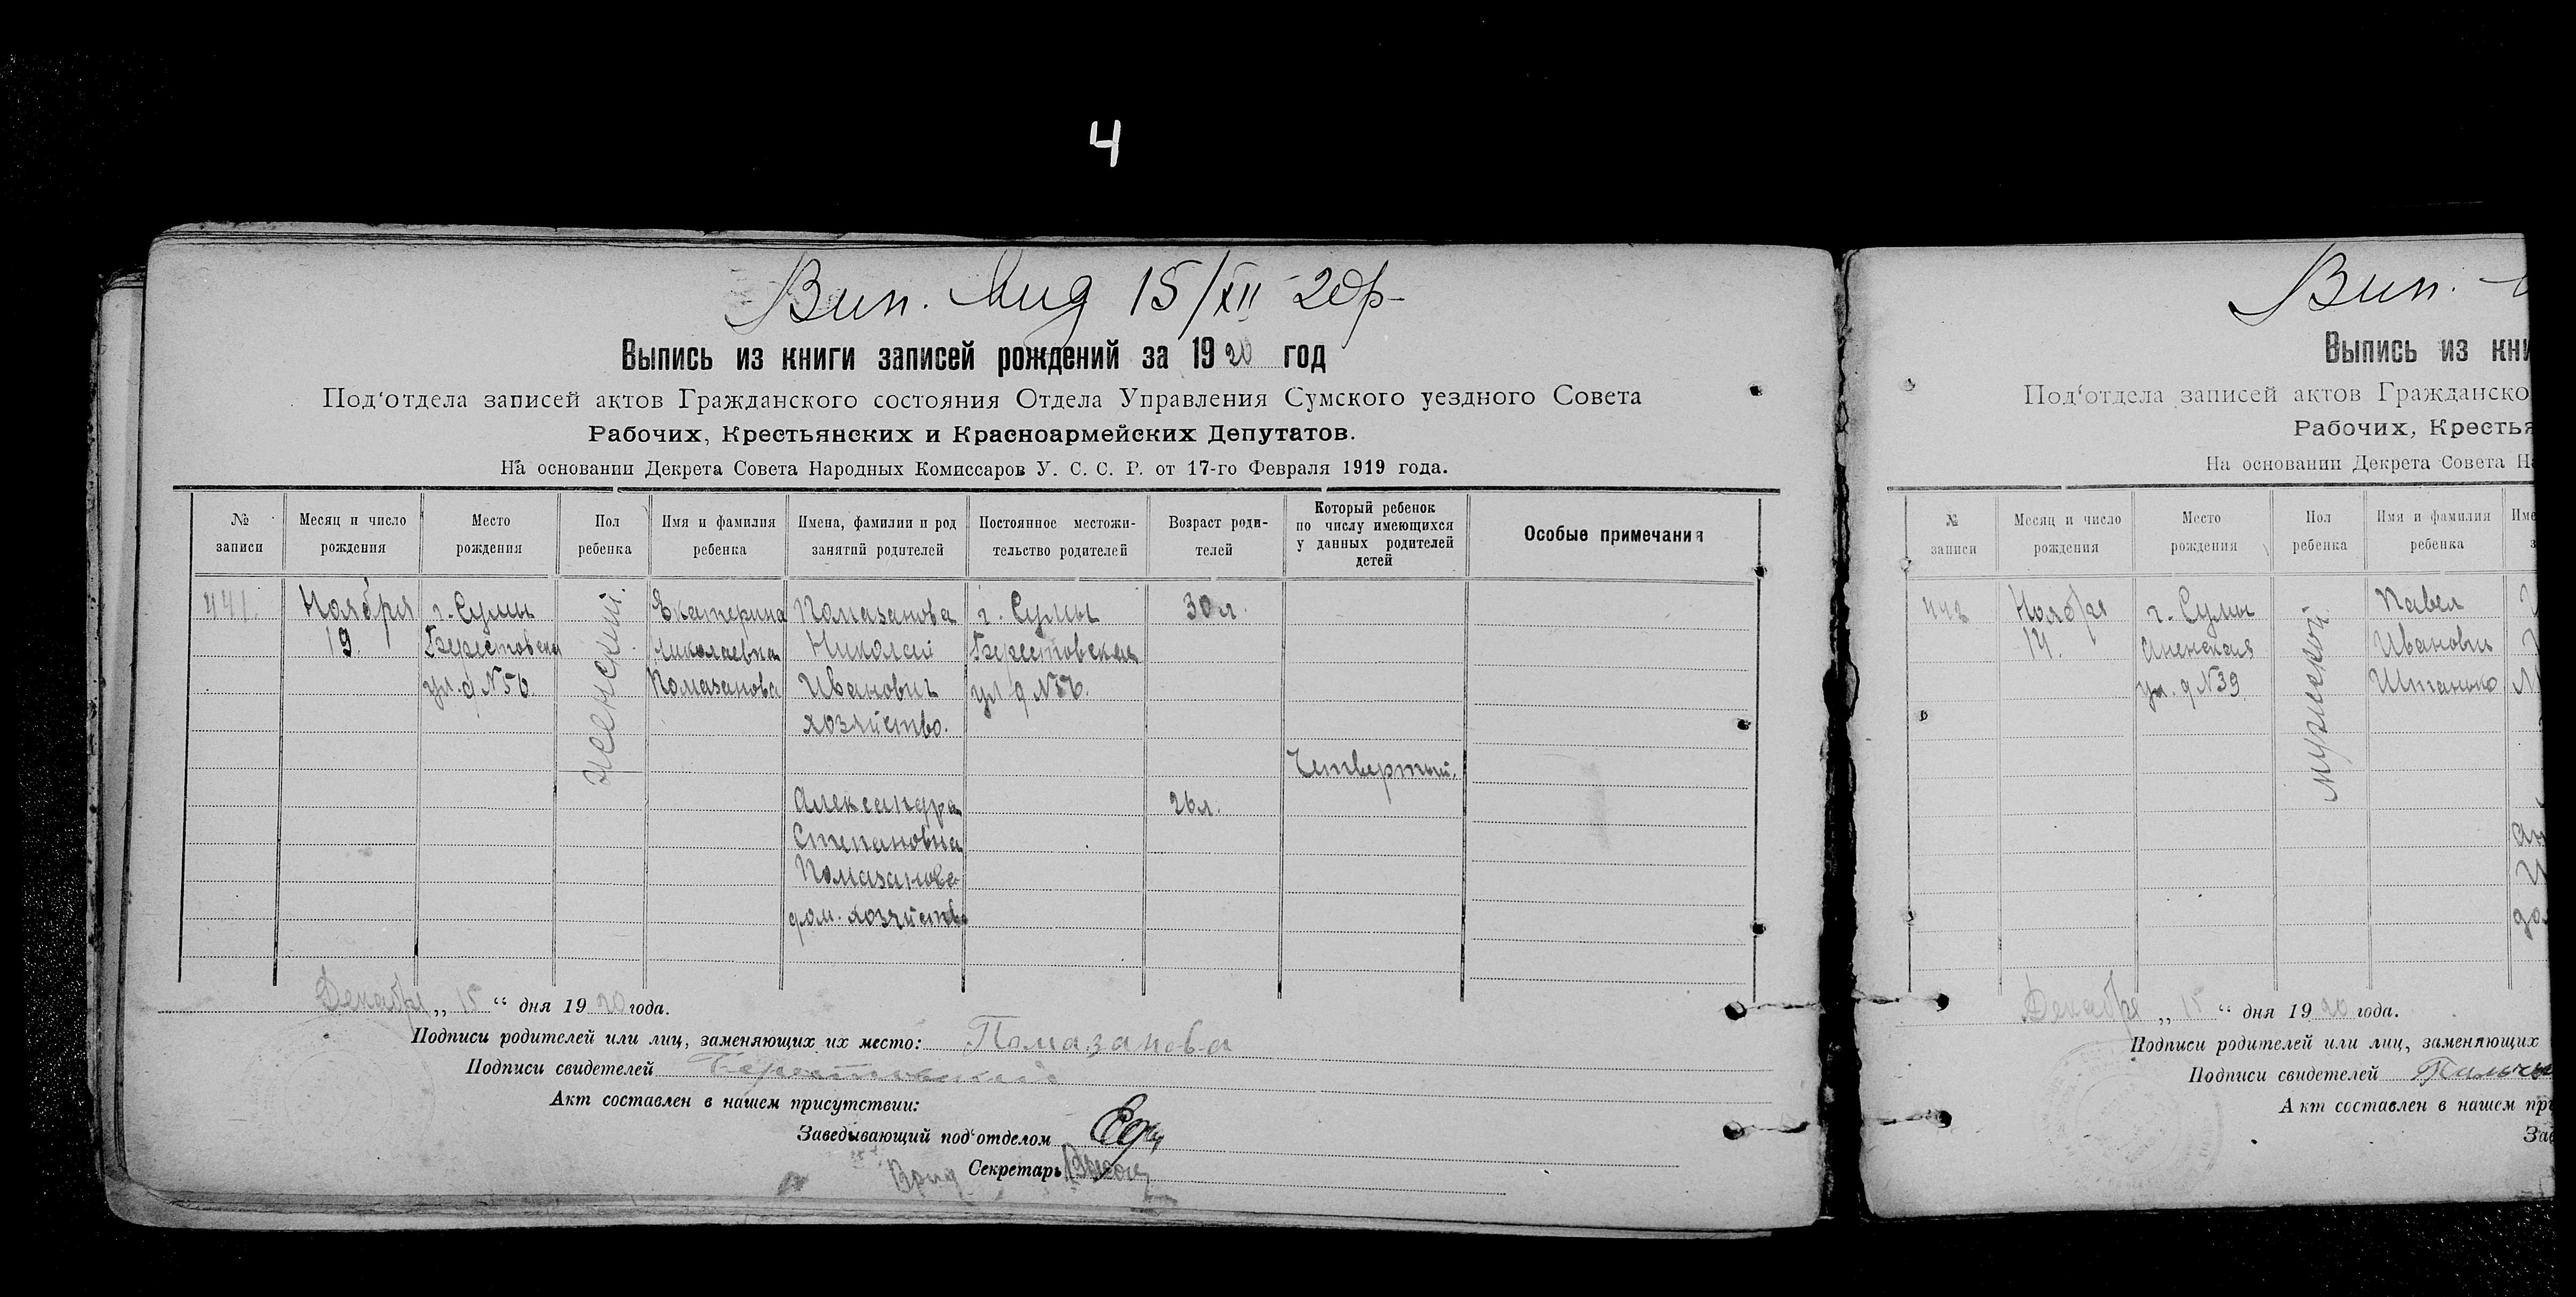 4
Вип. Мид 15/XII 20 р
Выпись из книги записей рождений за 1920 год
Под‘отдела записей актов Гражданского состояния Отдела Управления Сумского уездного Совета
Рабочих, Крестьянских и Красноармейских Депутатов.
На основании Декрета Совета Народных Комиссаров У. С. С. Р. от 17-го Февраля 1919 года.
№ записи
Месяц и число рождения
Место рождения
Пол ребенка
Имя и фамилия ребенка
Имена, фамилии и род занятий родителей
Постоянное местожительство родителей
Возраст родителей
Который ребенок по числу имеющихся у данных родителей детей
Особые примечания
441.
Ноября
19.
г. Сумы
Берестовская
ул. д №56.
женский.
Екатерина
Николаевна
Помазанова
Помазанова
Николай
Иванович
хозяйство.
Александра
Степановна
Помазанова
дом. хозяйство
г. Сумы
Берестовская
ул д №56.
30 л.
26 л.
Четвертый.
Декабря „ 15 “ дня 1920 года.
Подписи родителей или лиц, заменяющих их место: Помазанова
Подписи свидетелей
Акт составлен в нашем присутствии:
Заведывающий под‘отделом
Врид Секретарь
Вип.
Выпись из кни
Под‘отдела записей актов Гражданско
Рабочих, Крестья
На основании Декрета Совета На
№ записи
Месяц и число рождения
Место рождения
Пол ребенка
Имя и фамилия ребенка
Име
Ноября
14.
г. Сумы
ул. д №39
мужской
Павел
Иванович
Штанько
Декабря „ 15 “ дня 1920 года.
Подписи родителей или лиц, заменяющих
Подписи свидетелей
Акт составлен в нашем при
Зав